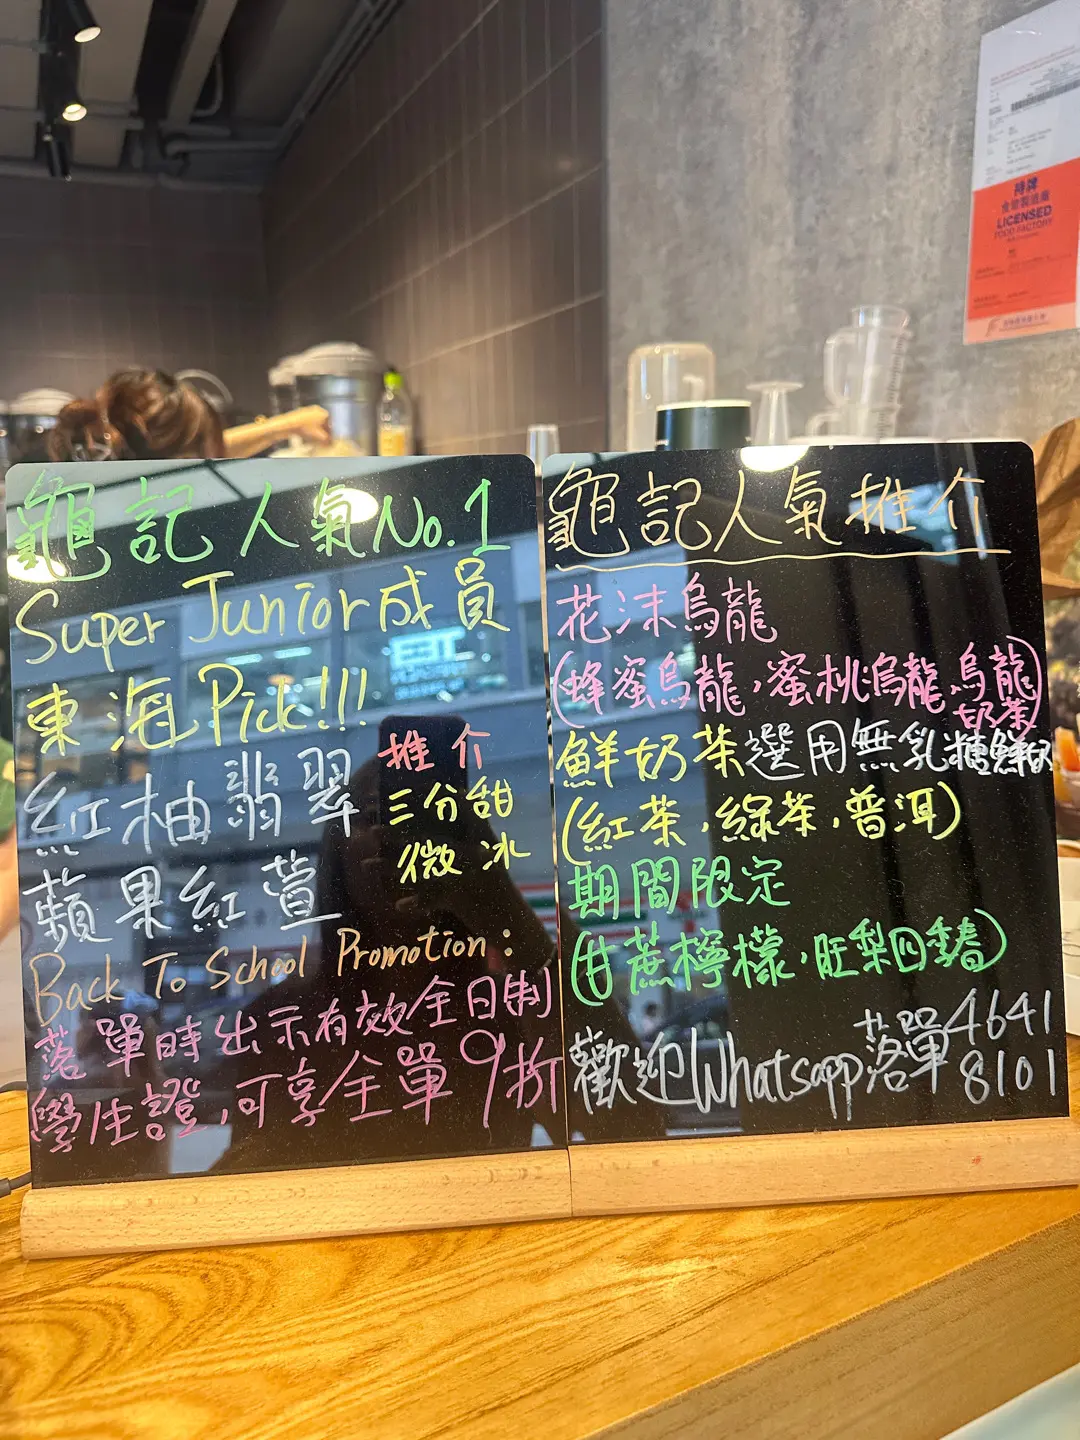 龜記人氣No.1
Super Junior成員
東海Pick!!!
紅柚翡翠
蘋果紅萱
推介
三分甜
微冰
Back To School Promotion:
落單時出示有效全日制
學生證,可享全單9折
龜記人氣推介
花沫烏龍
(蜂蜜烏龍,蜜桃烏龍,烏龍奶茶)
鮮奶茶選用無乳糖鮮奶
(紅茶,綠茶,普洱)
期間限定
(甘蔗檸檬,旺梨四季春)
歡迎Whatsapp落單4641
8101
持牌
食物製造廠
LICENSED
FOOD FACTORY